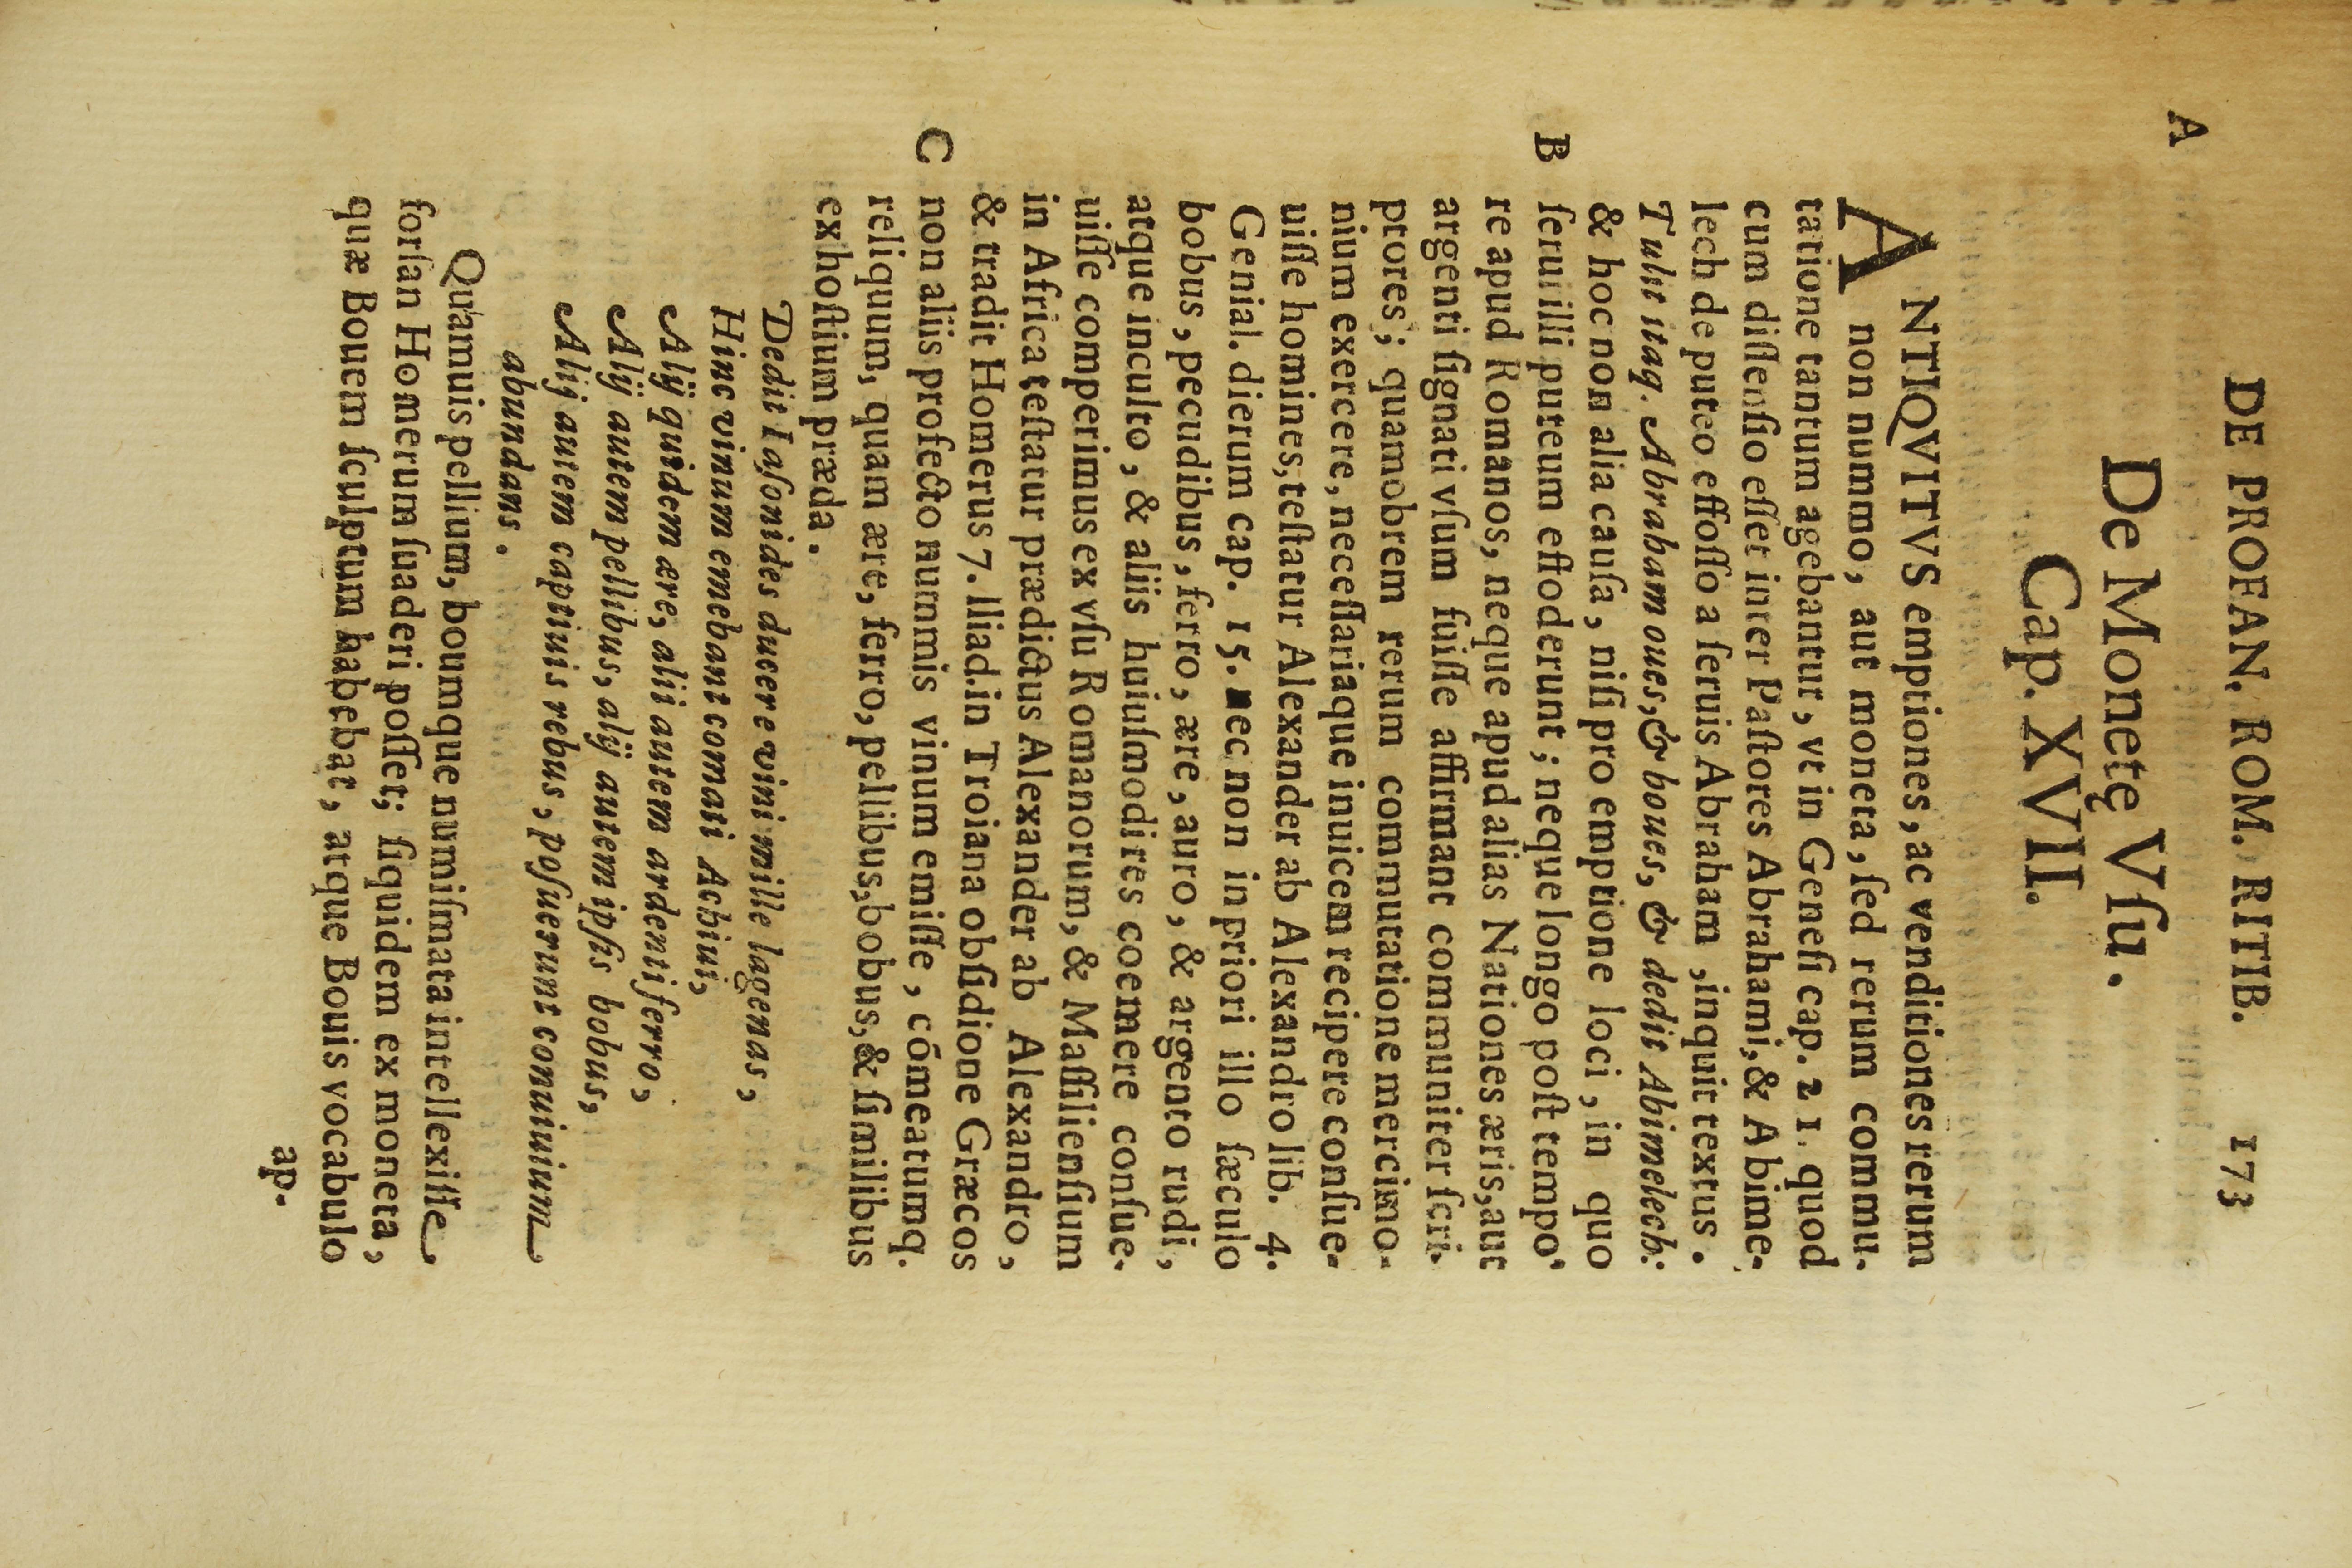 DE PROFAN. ROM. RITIB. 173
A
De Monetę Vſu.
Cap. XVII.
ANTIQVITVS emptiones, ac venditiones rerum
non nummo, aut moneta, ſed rerum commu-
tatione tantum agebantur, vt in Geneſi cap. 21. quod
cum diſſenſio eſſet inter Paſtores Abrahami, & Abime-
lech de puteo effoſſo a ſeruis Abraham, inquit textus.
Tulit itaq. Abraham oues, & boues, & dedit Abimelech:
& hoc non alia cauſa, niſi pro emptione loci, in quo
B ſerui illi puteum effoderunt; neque longo poſt tempo-
re apud Romanos, neque apud alias Nationes æris, aut
argenti ſignati vſum fuiſſe affirmant communiter ſcri-
ptores; quamobrem rerum commutatione mercimo-
nium exercere, neceſſariaque inuicem recipere conſue-
uiſſe homines, teſtatur Alexander ab Alexandro lib. 4.
Genial. dierum cap. 15. nec non in priori illo ſæculo
bobus, pecudibus, ferro, ære, auro, & argento rudi,
atque inculto, & aliis huiuſmodi res coemere conſue-
uiſſe comperimus ex vſu Romanorum, & Maſſilienſium
in Africa teſtatur prædictus Alexander ab Alexandro,
& tradit Homerus 7. Iliad. in Troiana obſidione Græcos
C non aliis profecto nummis vinum emiſſe, cōmeatumq.
reliquum, quam ære, ferro, pellibus, bobus, & ſimilibus
ex hoſtium præda.
Dedit Iaſonides ducere vini mille lagenas,
Hinc vinum emebant comati Achiui,
Alij quidem ære, alii autem ardenti ferro,
Alij autem pellibus, alij autem ipſis bobus,
Alij autem captiuis rebus, poſuerunt conuiuium
abundans.
Quamuis pellium, boumque numiſmata intellexiſſe
forſan Homerum ſuaderi poſſet; ſiquidem ex moneta,
quæ Bouem ſculptum habebat, atque Bouis vocabulo
ap-